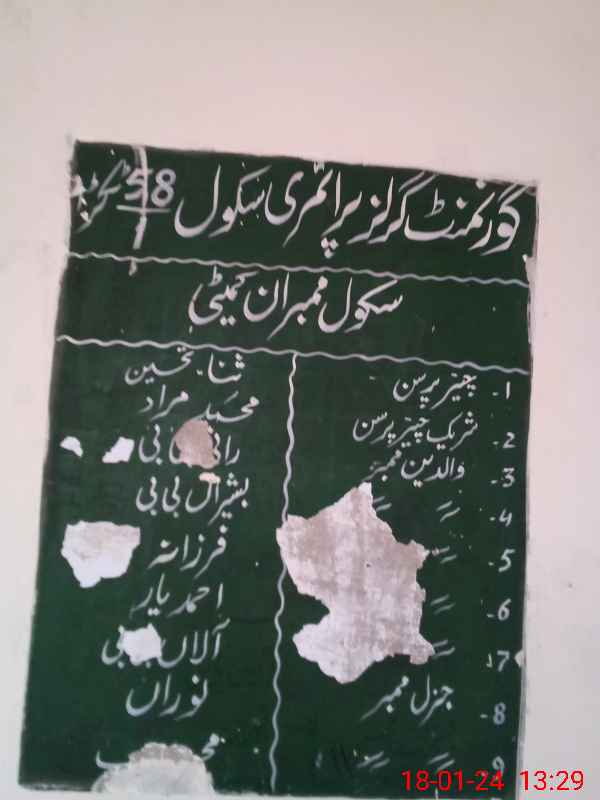 گورنمنٹ گرلز پرائمری سکول 58/1
سکول ممبران کمیٹی
1- چیئرپرسن ثنا تحسین
2- شریک چیئرپرسن محمد مراد
3- والدین ممبر بی بی
4- // بشیراں بی بی
5- // فرزانہ
6- // احمد یار
7- // آلاں بی بی
8- جنرل ممبر نوراں
9 // //
18-01-24 13:29